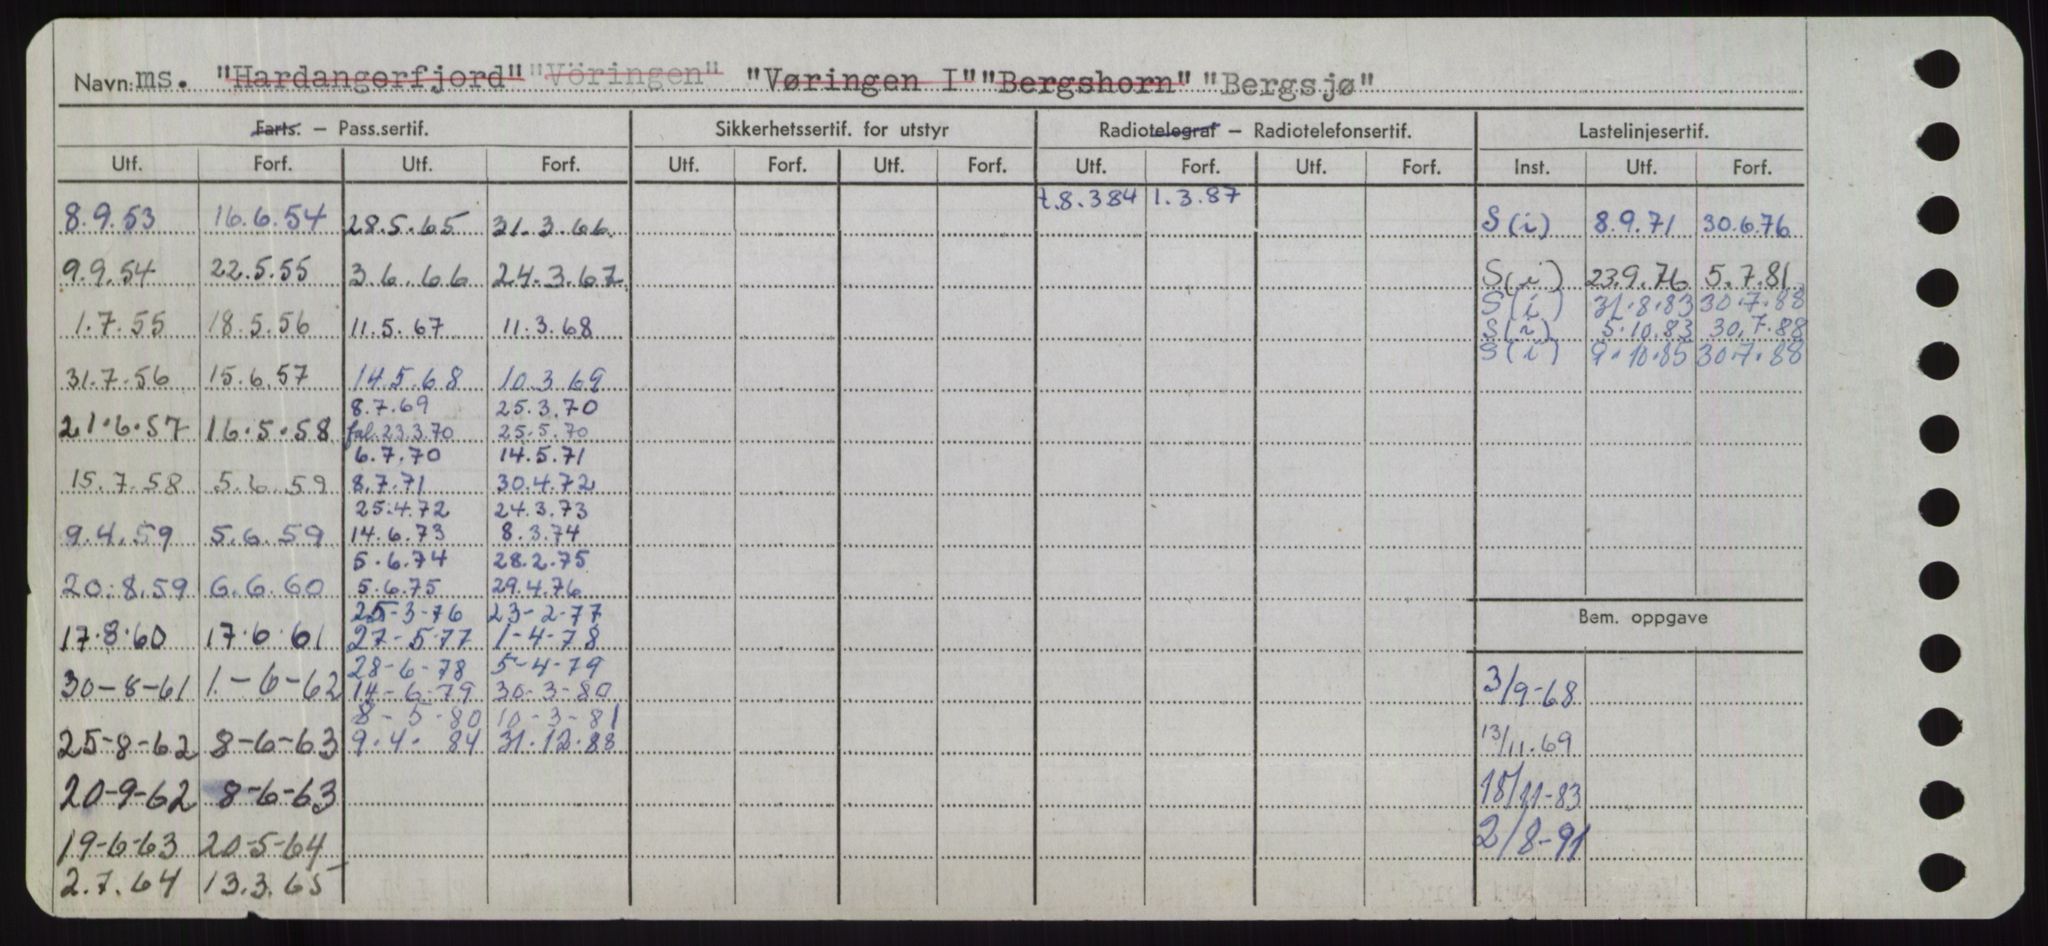 Navn: ms. "Hardangerfjord" "Vöringen" "Vøringen I" "Bergshorn" "Bergsjø"
Farts. – Pass.sertif. Sikkerhetssertif. for utstyr Radiotelegraf – Radiotelefonsertif. Lastelinjesertif.
Utf. Forf. Utf. Forf. Utf. Forf. Utf. Forf. Utf. Forf. Utf. Forf. Inst. Utf. Forf.
t.8.384 1.3.87
8.9.53 16.6.54 28.5.65 31.3.66 S(i) 8.9.71 30.6.76
9.9.54 22.5.55 3.6.66 24.3.67 S(i) 23.9.76 5.7.81
S(i) 31.8.83 30.7.88
1.7.55 18.5.56 11.5.67 11.3.68 S(i) 5.10.83 30.7.88
S(i) 9.10.85 30.7.88
31.7.56 15.6.57 14.5.68 10.3.69
8.7.69 25.3.70
21.6.57 16.5.58 fal.23.3.70 25.5.70
6.7.70 14.5.71
15.7.58 5.6.59 8.7.71 30.4.72
25.4.72 24.3.73
9.4.59 5.6.59 14.6.73 8.3.74
5.6.74 28.2.75
20.8.59 6.6.60 5.6.75 29.4.76
25-3-76 23-2-77
Bem. oppgave
17.8.60 17.6.61 27-5-77 1-4-78
28-6-78 5-4-79
30-8-61 1-6-62 14-6-79 30-3-80 3/9-68
8-5-80 10-3-81
25-8-62 8-6-63 9.4.84 31.12.88 13/11.69
20-9-62 8-6-63 18/11-83
19-6-63 20-5-64 2/8-91
2.7.64 13.3.65